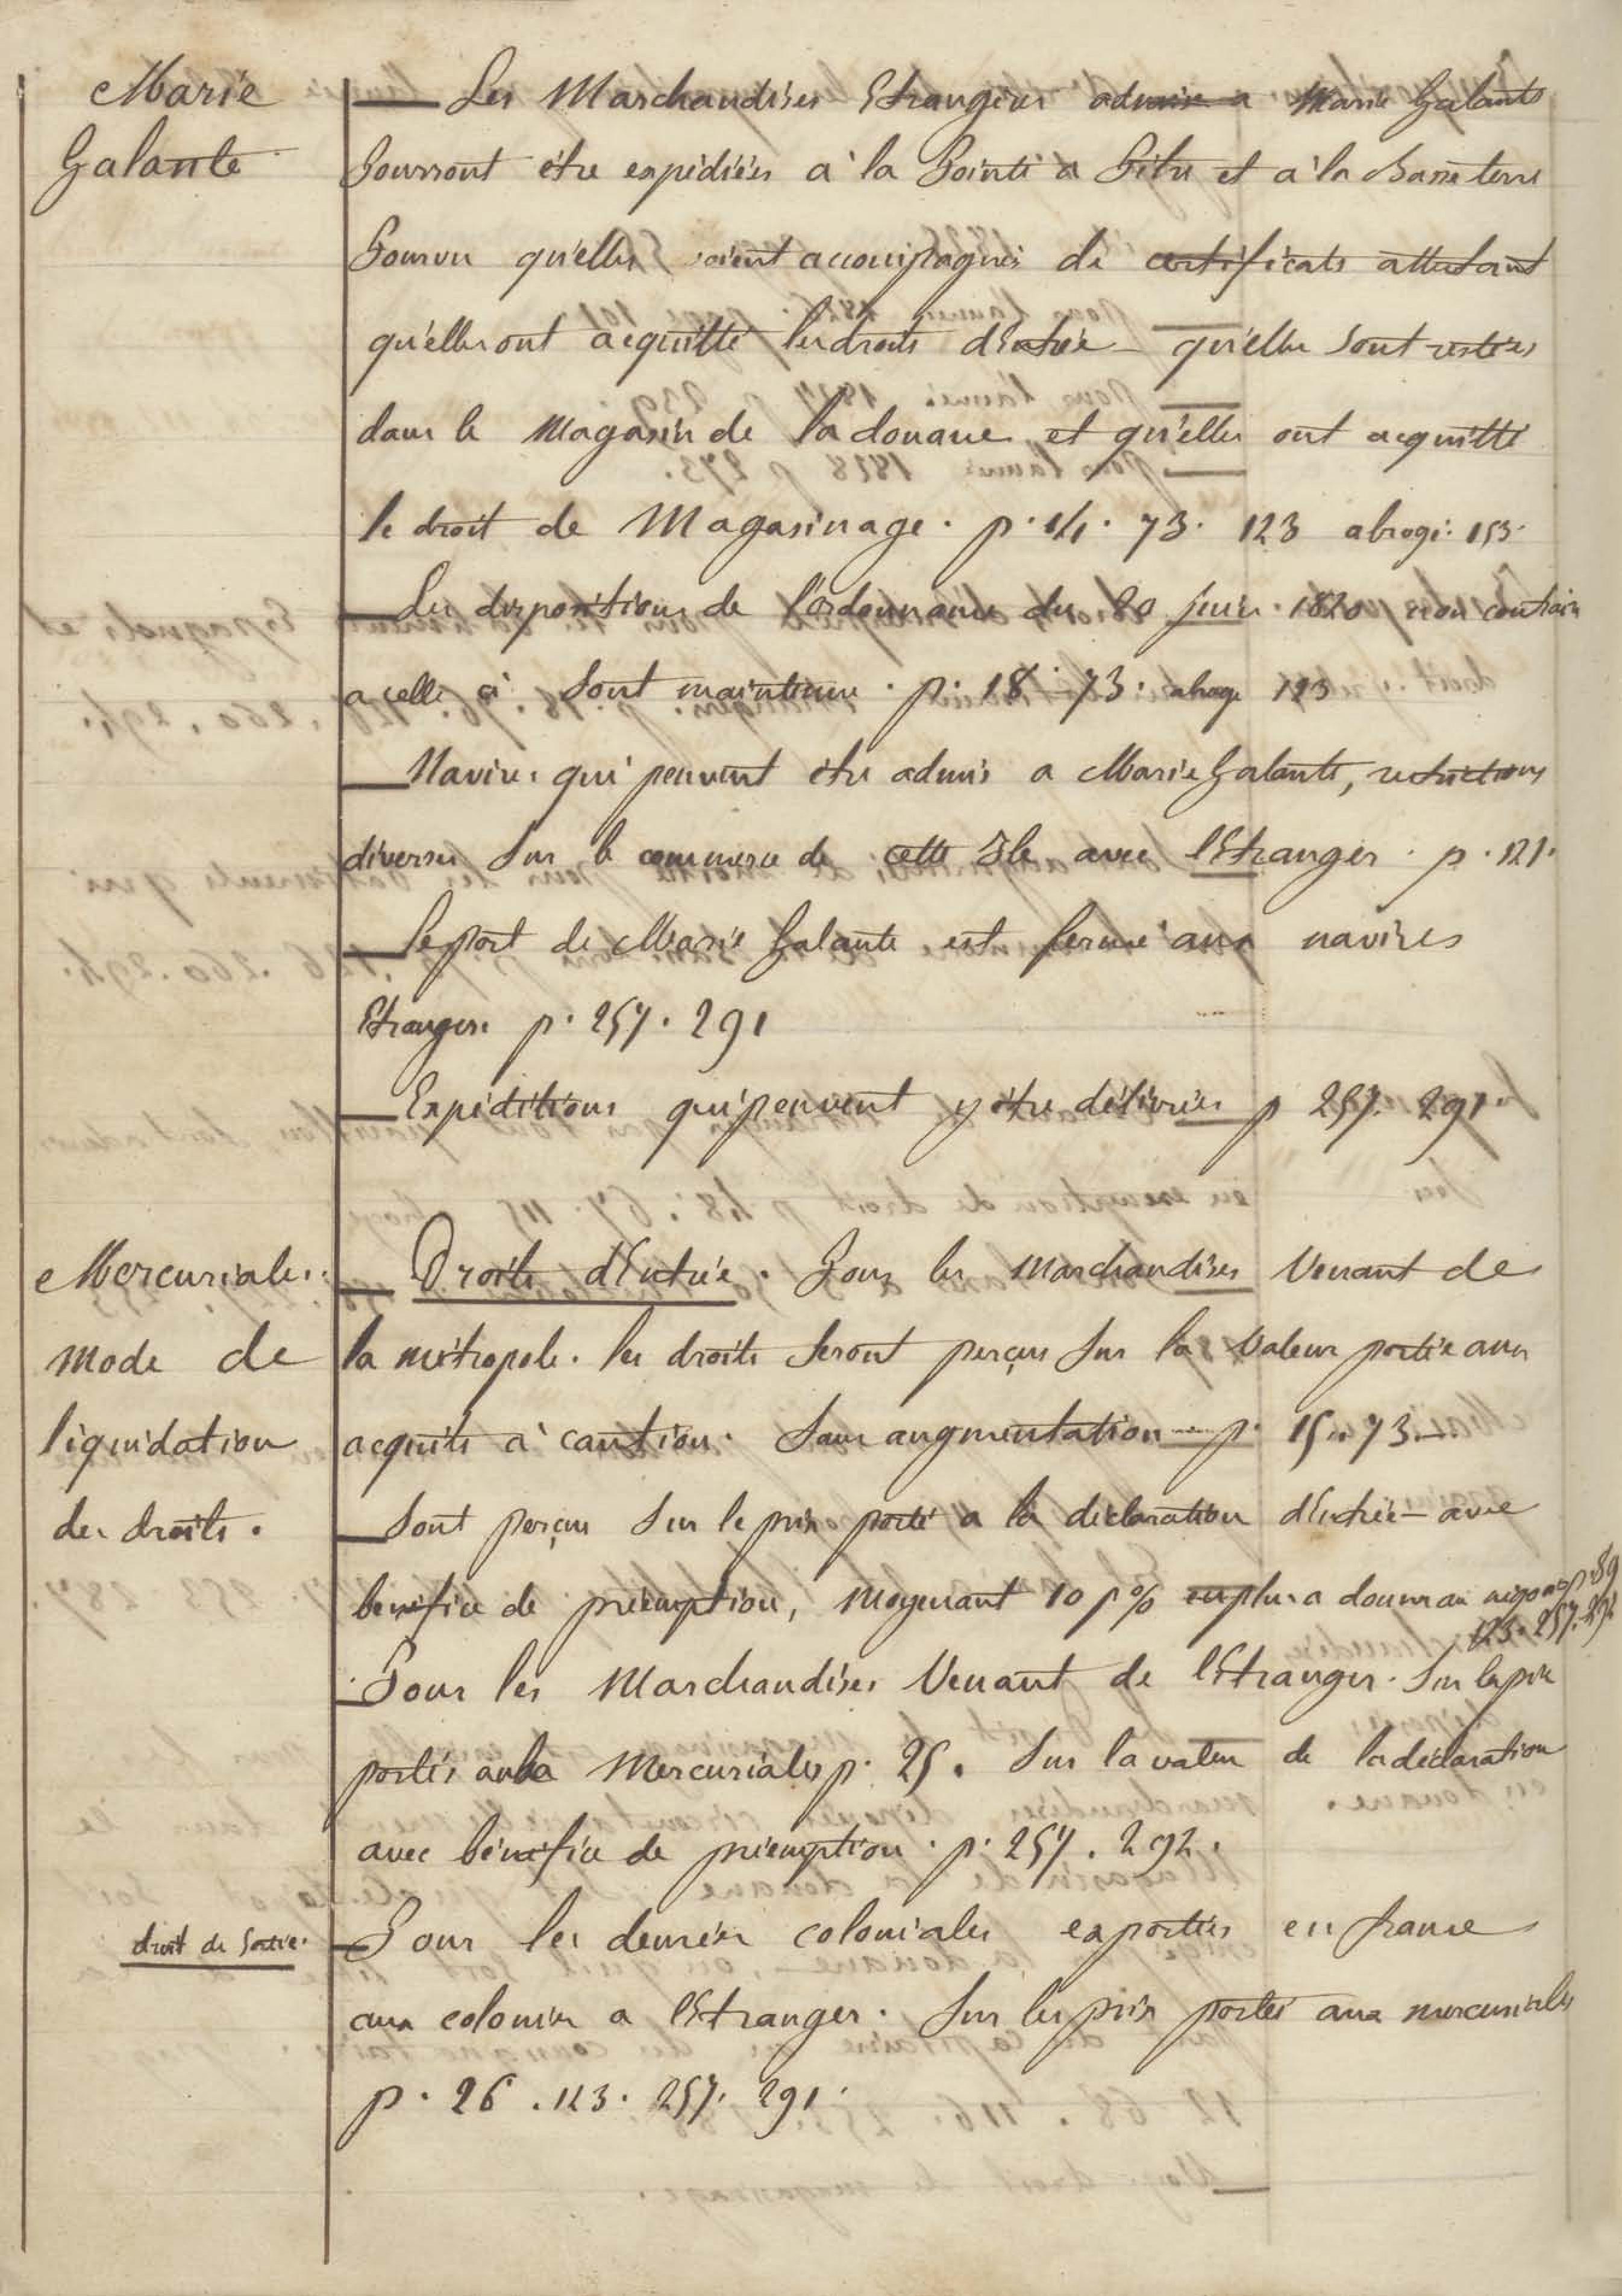 Marie
Galante
— Les Marchandises Etrangères admise a Marie Galante
Pourront être expédiées à la Pointe à Pitre et à la Basse terre
Pourvu qu'elles soient accompagnés de certificats attestant
qu'elles ont acquitté les droits d'Entrée — qu'elles sont restées
dans le Magasin de la douane et qu'elles ont acquitté
le droit de Magasinage. p. 73. 123 abrogé. 153.
— Les dispositions de l'ordonnance du 20 juin 1820 non contraire
a celle ci sont maintenue. p. 18. 73. abrogé 123
— Navires qui peuvent être admis a Marie Galante, restrictions
diverses sur le commerce de cette Ile avec l'Etranger. p. 121.
— Le port de Marie Galante est fermé aux navires
Etrangers p. 257. 291
— Expéditions qui peuvent y être délivrées p 257. 291.
Mercuriales.
mode de
liquidation
des droits.
— Droits d'Entrée. Pour les Marchandises Venant de
la métropole. les droits seront perçus sur la Valeur portée aux
acquits à caution. Sans augmentation — p. 15. 73. —
— Sont perçus sur le prix porté a la déclaration d'Entrée — avec
bénéfice de préemption, Moyenant 10 p % en plus a donner au p. 89
123. 257. 292
— Pour les Marchandises Venant de l'Etranger. Sur le prix
portés Mercuriales p. 25. Sur la valeur de la déclaration
avec bénéfice de préemption. p. 257. 292.
droit de Sortie.
— Pour les denrées coloniales exportées en france
aux colonies a l'Etranger. Sur les prix portés aux mercuriales
p. 26. 123. 257. 291.